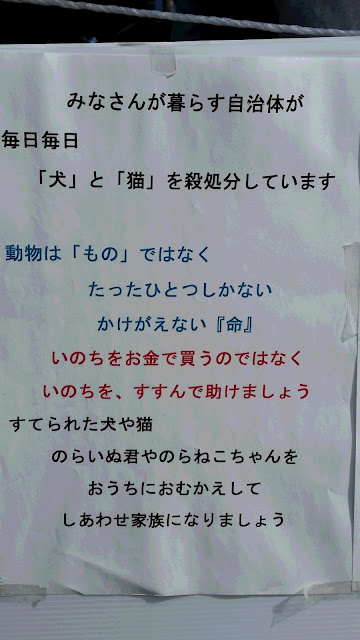 みなさんが暮らす自治体が
毎日毎日
「犬」と「猫」を殺処分しています
動物は「もの」ではなく
たったひとつしかない
かけがえない『命』
いのちをお金で買うのではなく
いのちを、すすんで助けましょう
すてられた犬や猫
のらいぬ君やのらねこちゃんを
おうちにおむかえして
しあわせ家族になりましょう